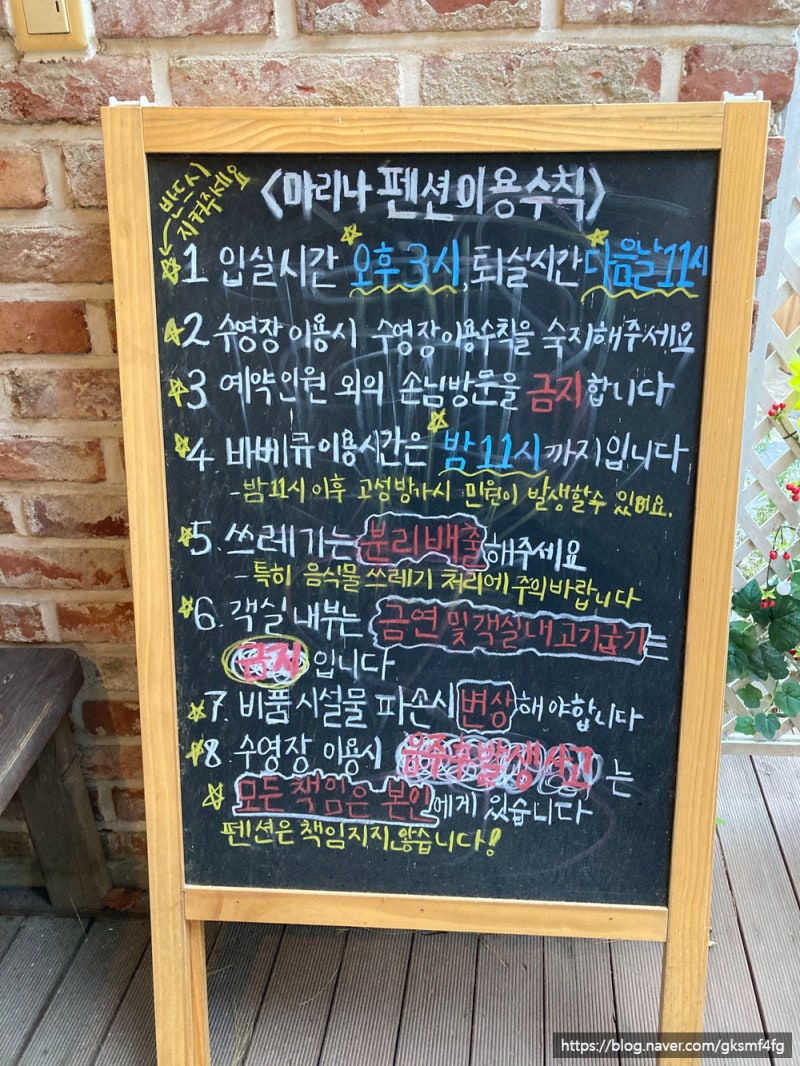 반드시
지켜주세요
<마리나 펜션 이용수칙>
1 입실시간 오후 3시, 퇴실시간 다음날 11시
2 수영장 이용시 수영장이용수칙을 숙지해주세요
3 예약인원 외의 손님방문을 금지합니다
4 바베큐 이용시간은 밤 11시 까지입니다
- 밤 11시 이후 고성방가시 민원이 발생할수 있어요.
5. 쓰레기는 분리배출해주세요
- 특히 음식물 쓰레기 처리에 주의바랍니다
6. 객실 내부는 금연 및 객실내 고기굽기는
금지 입니다
7. 비품 시설물 파손시 변상해야합니다
8 수영장 이용시 음주후발생사고 는
모든 책임은 본인에게 있습니다
펜션은 책임지지 않습니다!
https://blog.naver.com/gksmf4fg